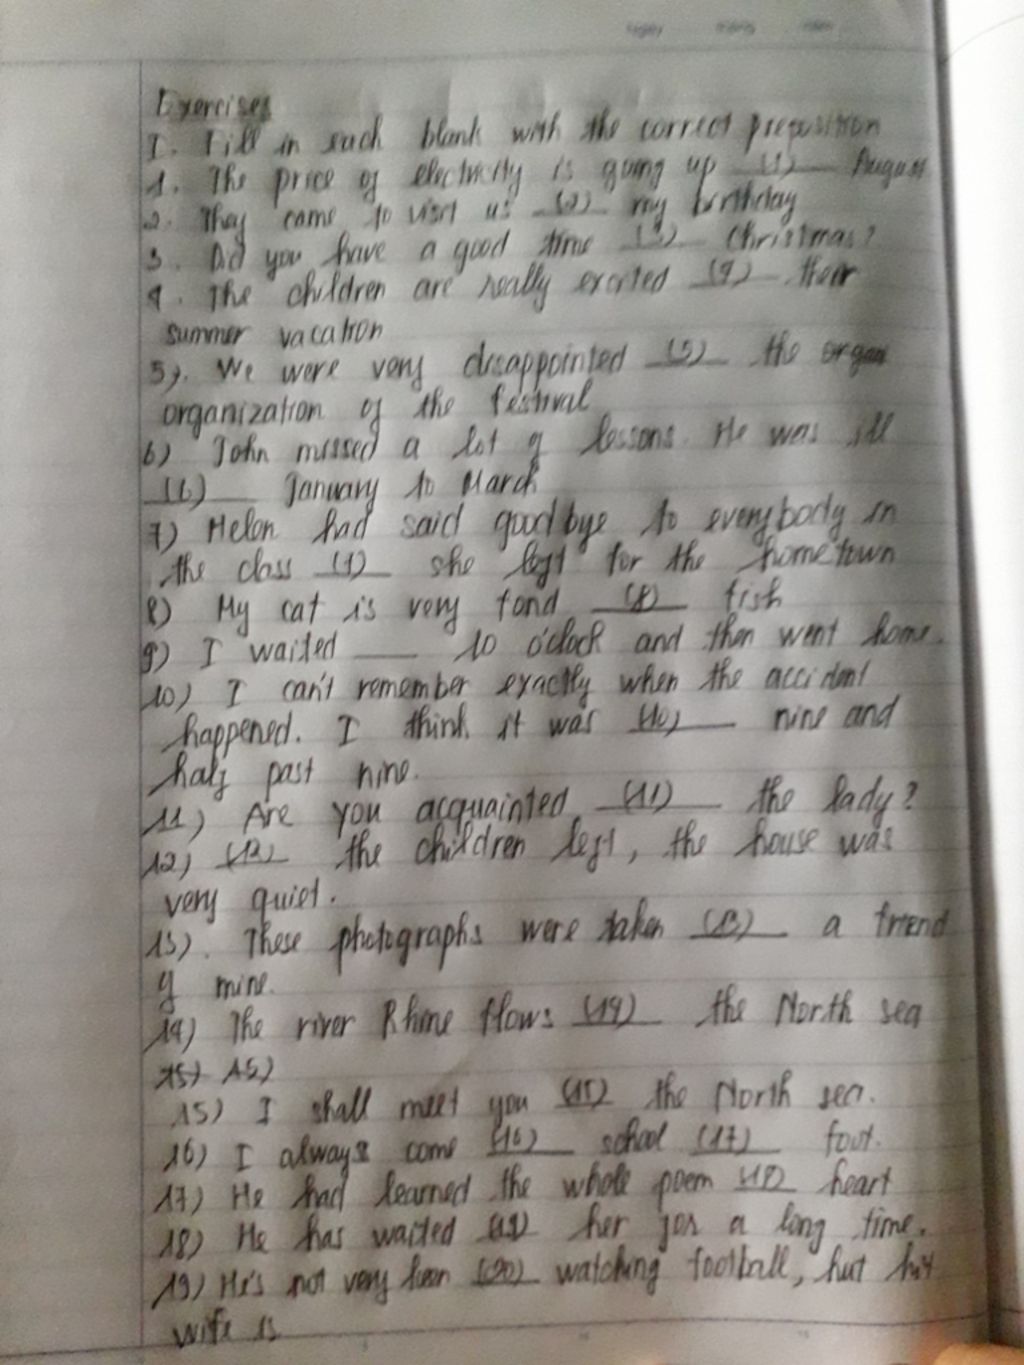 Ngày tháng năm
Exercises
I. Fill in each blank with the correct preposition
1. The price of electricity is going up (1) August
2. They came to visit us (2) my birthday
3. Did you have a good time (3) Christmas?
4. The children are really excited (4) their
summer vacation
5). We were very disappointed (5) the organ
organization of the festival
6) John missed a lot of lessons. He was ill
(6) January to March
7) Helen had said goodbye to everybody in
the class (7) she left for the hometown
8) My cat is very fond (8) fish
9) I waited ___ 10 o'clock and then went home.
10) I can't remember exactly when the accident
happened. I think it was (10) nine and
half past nine.
11) Are you acquainted (11) the lady?
12) (12) the children left, the house was
very quiet.
13). These photographs were taken (13) a friend
of mine.
14) The river Rhine flows (14) the North sea
15) 15)
15) I shall meet you (15) the North sea.
16) I always come (16) school (17) foot.
17) He had learned the whole poem (18) heart
18) He has waited (19) her for a long time.
19) He's not very keen (20) watching football, but his
wife is